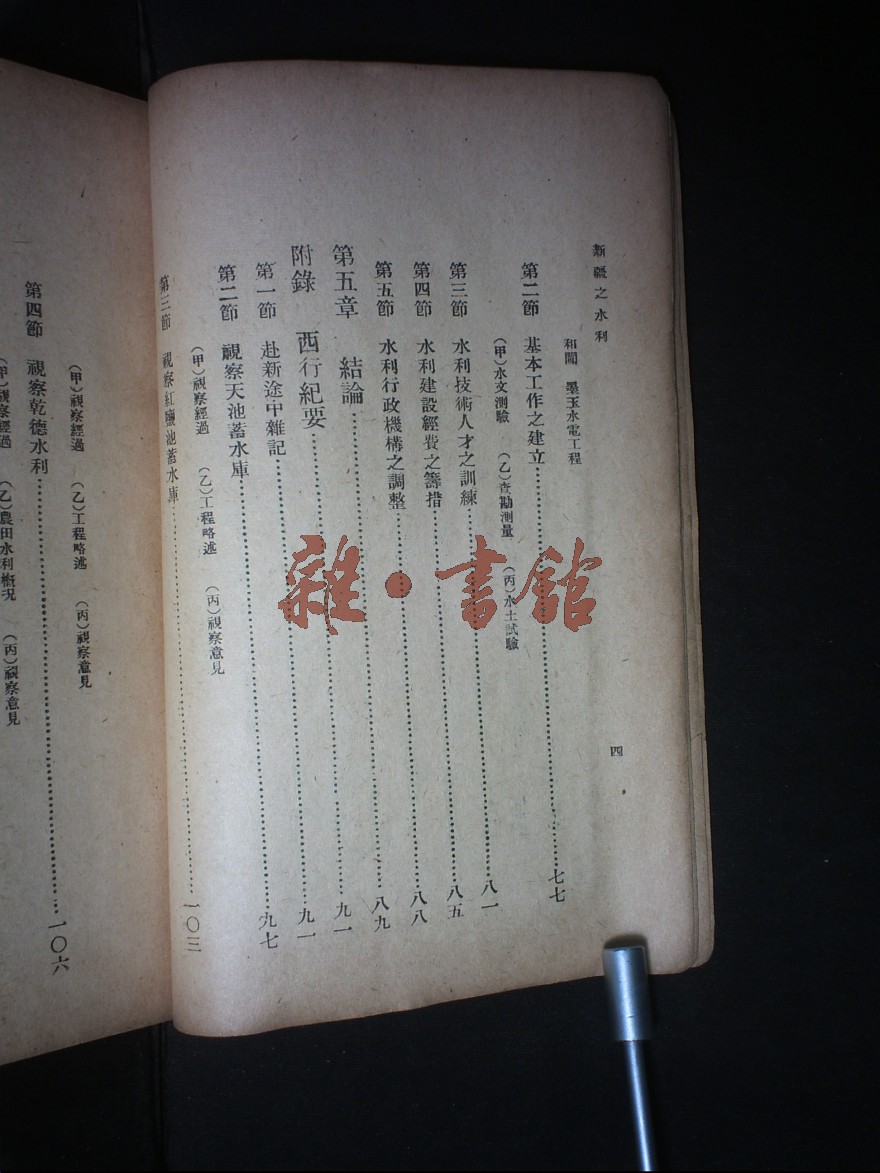 新疆之水利
四
和闐 墨玉水電工程
第二節 基本工作之建立……七七
(甲)水文測驗 (乙)查勘測量 (丙)水土試驗
第三節 水利技術人才之訓練……八一
第四節 水利建設經費之籌措……八五
第五節 水利行政機構之調整……八八
第五章 結論……八九
附錄 西行紀要……九一
第一節 赴新途中雜記……九一
第二節 視察天池蓄水庫……九七
(甲)視察經過 (乙)工程略述 (丙)視察意見
第三節 視察紅鹽池蓄水庫……一〇三
(甲)視察經過 (乙)工程略述 (丙)視察意見
第四節 視察乾德水利……一〇六
(甲)視察經過 (乙)農田水利概況 (丙)視察意見
雜·書館